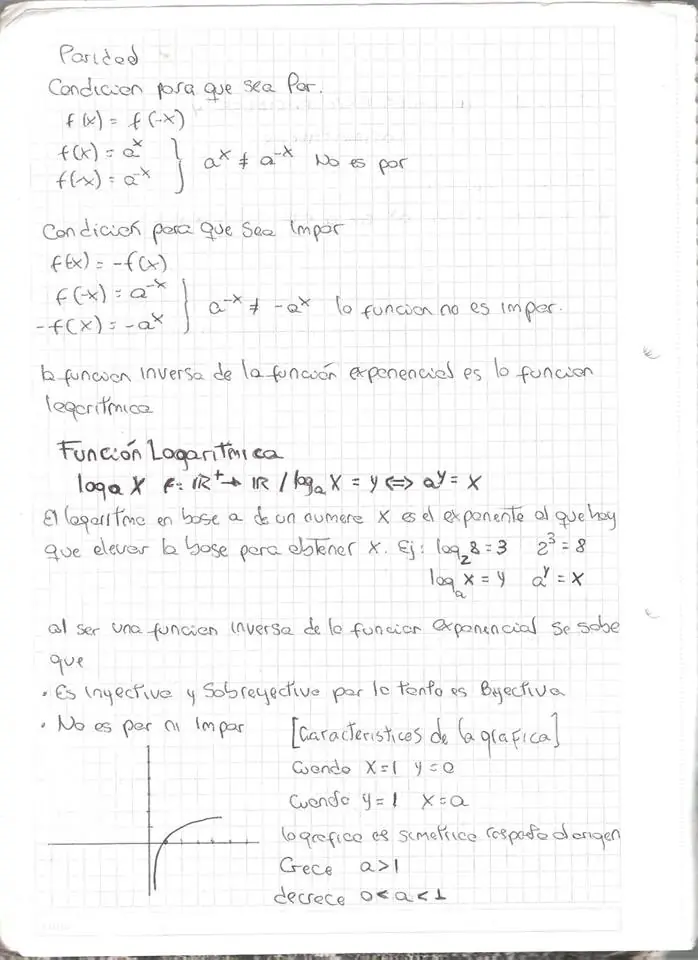 Paridad
Condicion para que sea Par.
f(x) = f(-x)
f(x) = a^x
f(-x) = a^-x } a^x ≠ a^-x No es par
Condición para que sea Impar
f(x) = -f(x)
f(-x) = a^-x
-f(x) = -a^x } a^-x ≠ -a^x la funcion no es impar.
la funcion inversa de la función exponencial es la funcion
logaritmica
Función Logaritmica
log_a x f: ℝ^+ → ℝ / log_a x = y ⇔ a^y = x
El logaritmo en base a de un numero x es el exponente al que hay
que elevar la base para obtener x. Ej: log_2 8 = 3 2^3 = 8
log_a x = y a^y = x
al ser una funcion inversa de la funcion exponencial se sabe
que
• Es inyectiva y Sobreyectiva por lo tanto es Biyectiva
• No es par ni Impar
[Caracteristicas de la grafica]
Cuando x=1 y=0
Cuando y=1 x=a
la grafica es simetrica respecto al origen
Crece a>1
decrece 0<a<1